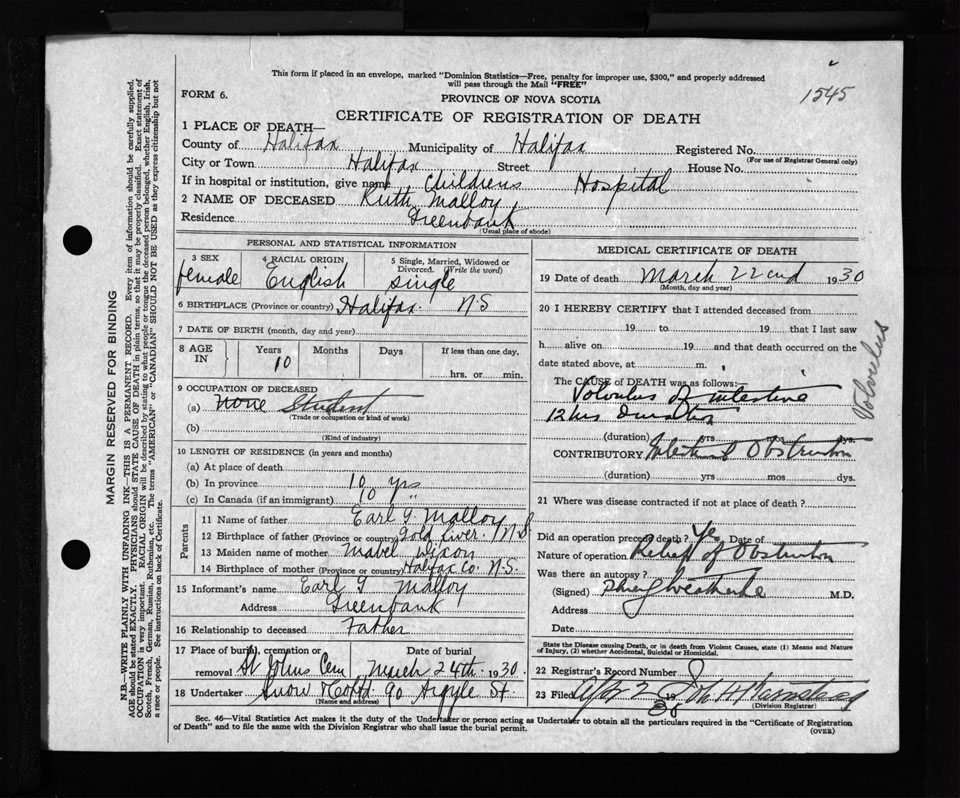 This form if placed in an envelope, marked "Dominion Statistics—Free, penalty for improper use, $300," and properly addressed
will pass through the Mail "FREE"
1545
FORM 6.
PROVINCE OF NOVA SCOTIA
CERTIFICATE OF REGISTRATION OF DEATH
1 PLACE OF DEATH—
County of Halifax Municipality of Halifax Registered No.
(For use of Registrar General only)
City or Town Halifax Street House No.
If in hospital or institution, give name Childrens Hospital
2 NAME OF DECEASED Ruth Malloy
Residence Greenbank
(Usual place of abode)
PERSONAL AND STATISTICAL INFORMATION
3 SEX 4 RACIAL ORIGIN 5 Single, Married, Widowed or Divorced. (Write the word)
female English single
6 BIRTHPLACE (Province or country) Halifax. N.S
7 DATE OF BIRTH (month, day and year)
8 AGE IN Years Months Days If less than one day,
10 hrs. or min.
9 OCCUPATION OF DECEASED
(a) none Student
(Trade or occupation or kind of work)
(b)
(Kind of industry)
10 LENGTH OF RESIDENCE (in years and months)
(a) At place of death
(b) In province 10 yrs
(c) In Canada (if an immigrant) 10 "
Parents
11 Name of father Earl G Malloy
12 Birthplace of father (Province or country) Gold River. N.S
13 Maiden name of mother Mabel Dixon
14 Birthplace of mother (Province or country) Halifax Co. N.S.
15 Informant's name Earl G Malloy
Address Greenbank
16 Relationship to deceased Father
17 Place of burial, cremation or removal St Johns Cem Date of burial March 24th 1930
18 Undertaker Snow & Co Ltd 90 Argyle St.
(Name and address)
MEDICAL CERTIFICATE OF DEATH
19 Date of death March 22nd 1930
(Month, day and year)
20 I HEREBY CERTIFY that I attended deceased from
19 to 19 that I last saw
h alive on 19 and that death occurred on the
date stated above, at m.
The CAUSE of DEATH was as follows:—
Volvulus of intestine
12 hrs Duration
(duration) yrs mos dys.
CONTRIBUTORY Intestinal Obstruction
(duration) yrs mos dys.
Volvulus
21 Where was disease contracted if not at place of death?
Did an operation precede death? Yes Date of
Nature of operation Relief of Obstruction
Was there an autopsy?
(Signed) M.D.
Address
Date
State the Disease causing Death, or in death from Violent Causes, state (1) Means and Nature
of Injury, (2) whether Accidental, Suicidal or Homicidal.
22 Registrar's Record Number 8
23 Filed Apr 2 1930
(Division Registrar)
Sec. 46—Vital Statistics Act makes it the duty of the Undertaker or person acting as Undertaker to obtain all the particulars required in the "Certificate of Registration
of Death" and to file the same with the Division Registrar who shall issue the burial permit.
(OVER)
MARGIN RESERVED FOR BINDING
N.B.—WRITE PLAINLY WITH UNFADING INK—THIS IS A PERMANENT RECORD. Every item of information should be carefully supplied.
AGE should be stated EXACTLY. PHYSICIANS should STATE CAUSE OF DEATH in plain terms, so that it may be properly classified. Exact statement of
OCCUPATION is very important. RACIAL ORIGIN will be described by stating to what people or tongue the deceased person belonged, whether English, Irish,
Scotch, French, German, Russian, Ruthenian, etc. The terms "AMERICAN" or "CANADIAN" SHOULD NOT BE USED as they express citizenship but not
a race or people. See instructions on back of Certificate.